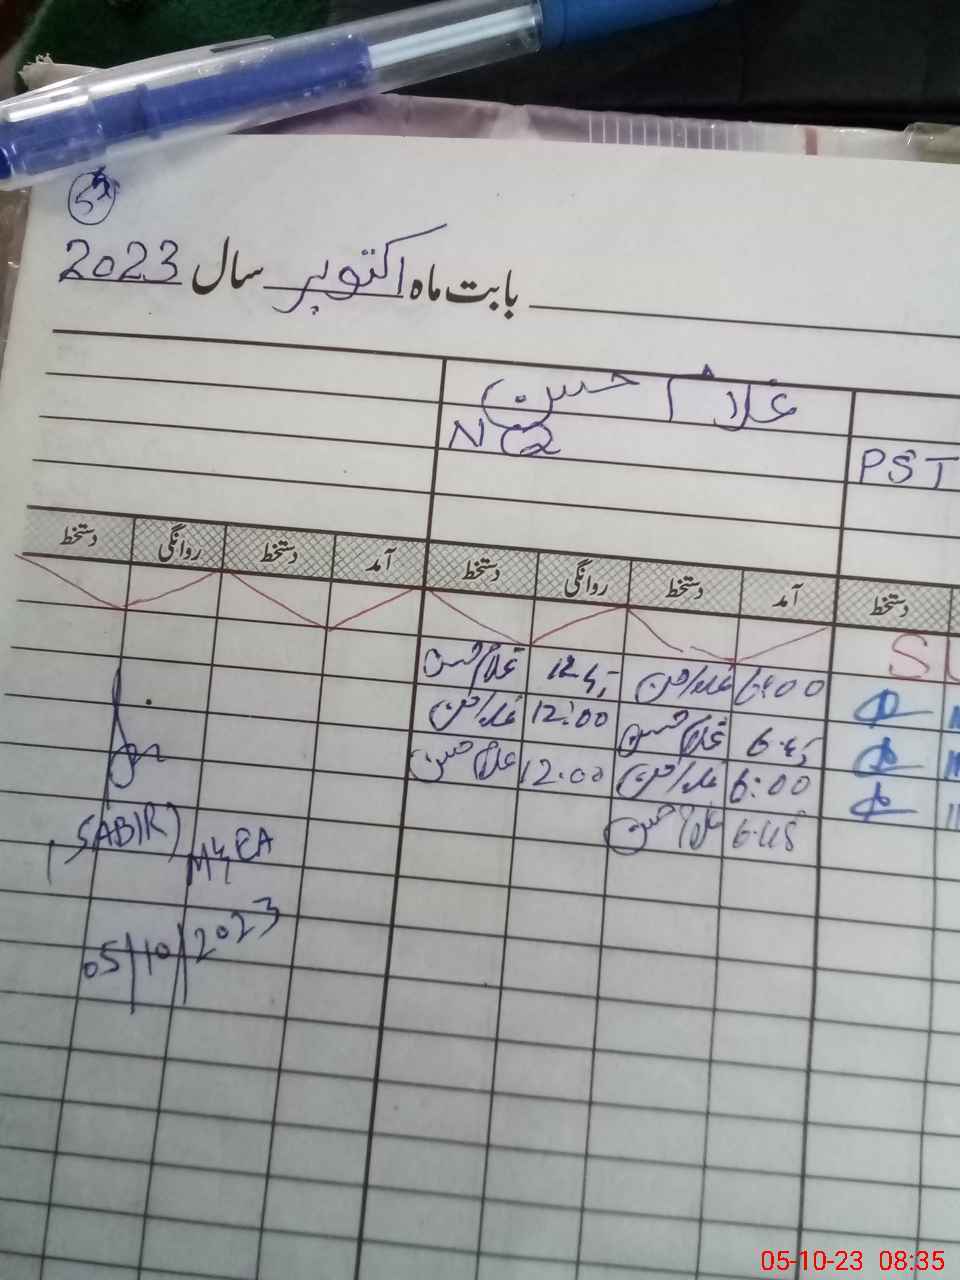 بابت ماہ اکتوبر سال 2023
غلام حسن
PST
آمد دستخط روانگی دستخط آمد دستخط روانگی دستخط
دستخط
S
6:00 غلام حسن 12:45 غلام حسن
6:45 غلام حسن 12:00 غلام حسن
6:00 غلام حسن 12:00 غلام حسن
6:45 غلام حسن
(SABIR)
M&EA
05/10/2023
05-10-23 08:35